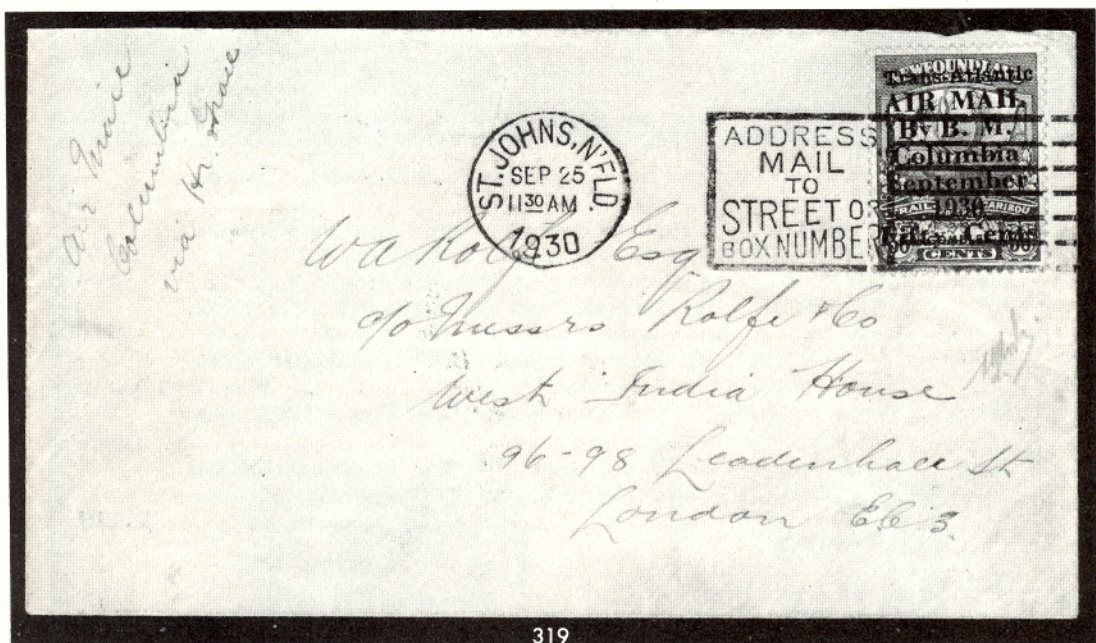 Air Mail
Columbia
via Hr. Grace
ST. JOHNS, N'FLD.
SEP 25
11 30 AM
1930
ADDRESS
MAIL
TO
STREET OR
BOX NUMBER
NEWFOUNDLAND
Trans-Atlantic
AIR MAIL
By B. M.
Columbia
September
1930
Fifty Cents
CARIBOU
CENTS
W A Rolfe Esq
c/o Messrs Rolfe & Co
West India House
96-98 Leadenhall St
London EC 3.
319